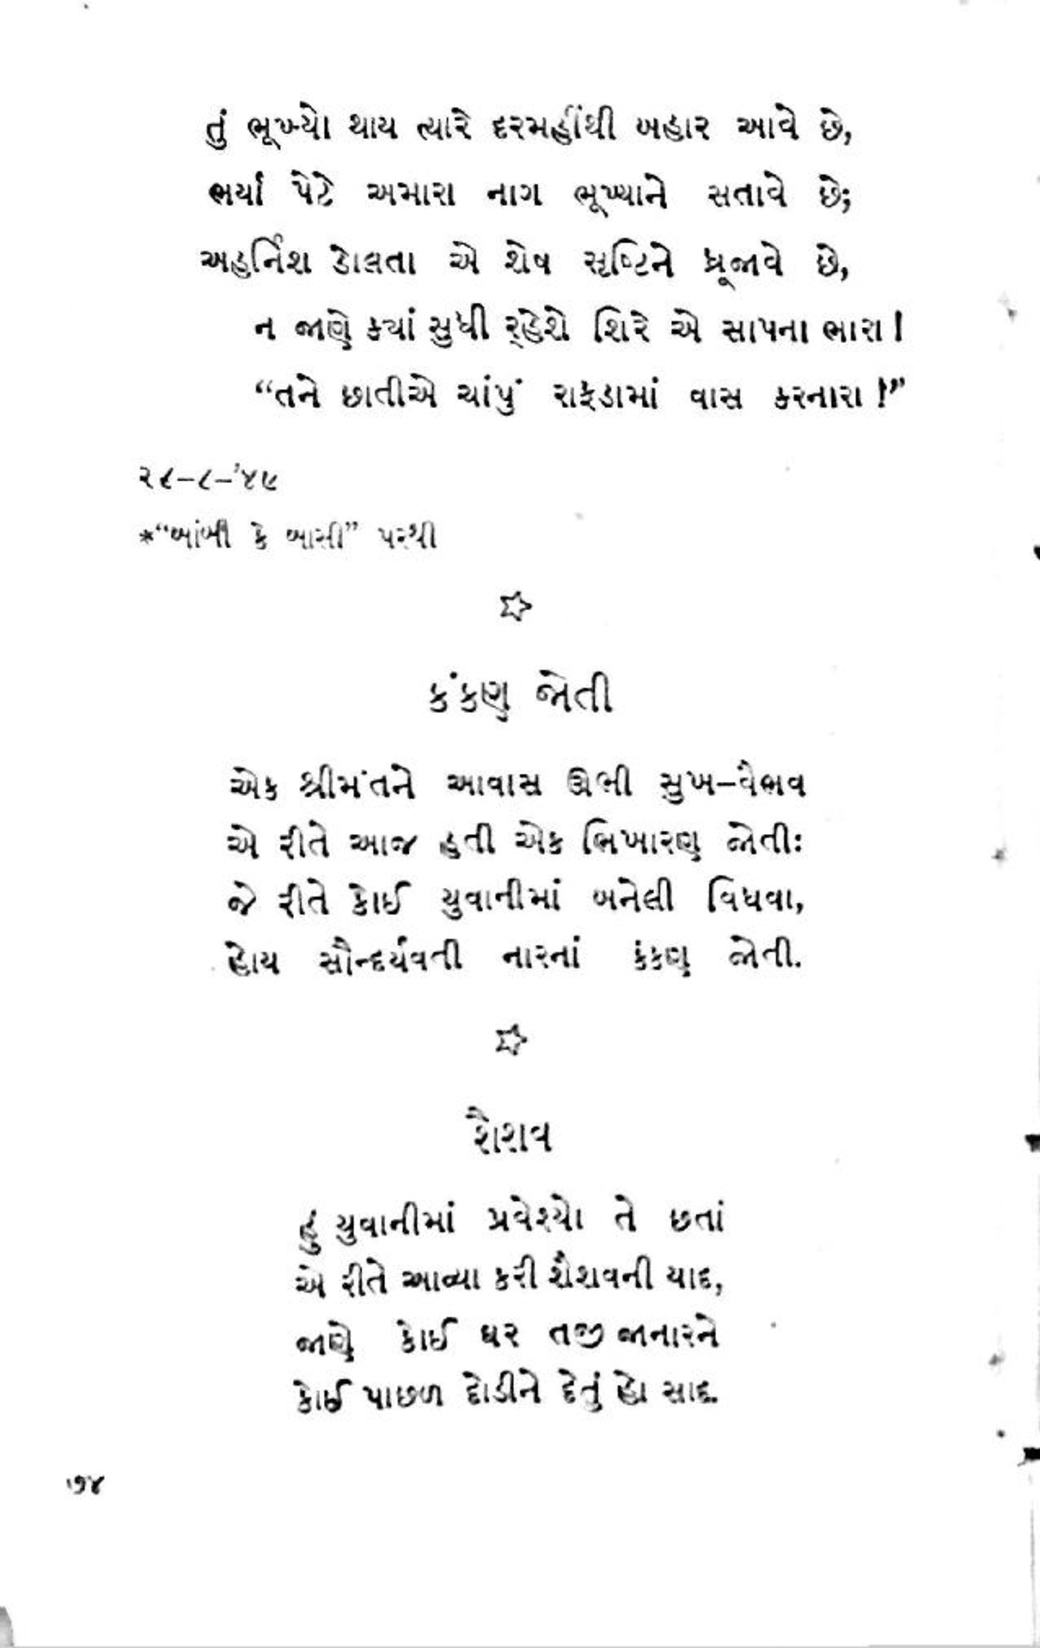 તું ભૂખ્યો થાય ત્યારે દરમહીંથી બહાર આવે છે,
ભર્યાં પેટે અમારા નાગ ભૂખ્યાને સતાવે છે;
અહર્નિશ ડોલતા એ શેષ સૃષ્ટિને ધ્રૂજાવે છે,
ન જાણે ક્યાં સુધી ર્‌હેશે શિરે એ સાપના ભારા!
“તને છાતીએ ચાંપું રાફડામાં વાસ કરનારા!”
૨૯–૮–’૪૫
*“આંબી કે બાસી” પરથી
☆
કંકણ જોતી
એક શ્રીમંતને આવાસ ઊભી સુખ–વૈભવ
એ રીતે આજ હતી એક ભિખારણ જોતીઃ
જે રીતે કોઈ યુવાનીમાં બનેલી વિધવા,
હોય સૌન્દર્યવતી નારનાં કંકણ જોતી.
☆
શૈશવ
હું યુવાનીમાં પ્રવેશ્યો તે છતાં
એ રીતે આવ્યા કરી શૈશવની યાદ,
જાણે કોઈ ઘર તજી જાનારને
કોઈ પાછળ દોડીને દેતું હો સાદ.
૭૪